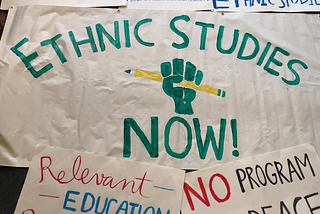 ETHNIC STUDIES
ETHNIC STUDIES
NOW!
Relevant
EDUCATION
NO PROGRAM
PEACE